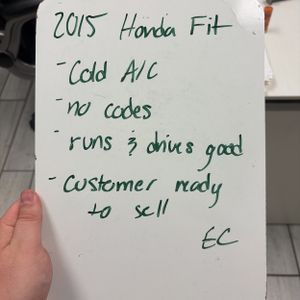 2015 Honda Fit
- Cold A/C
- no codes
- runs & drives good
- customer ready
to sell
EC